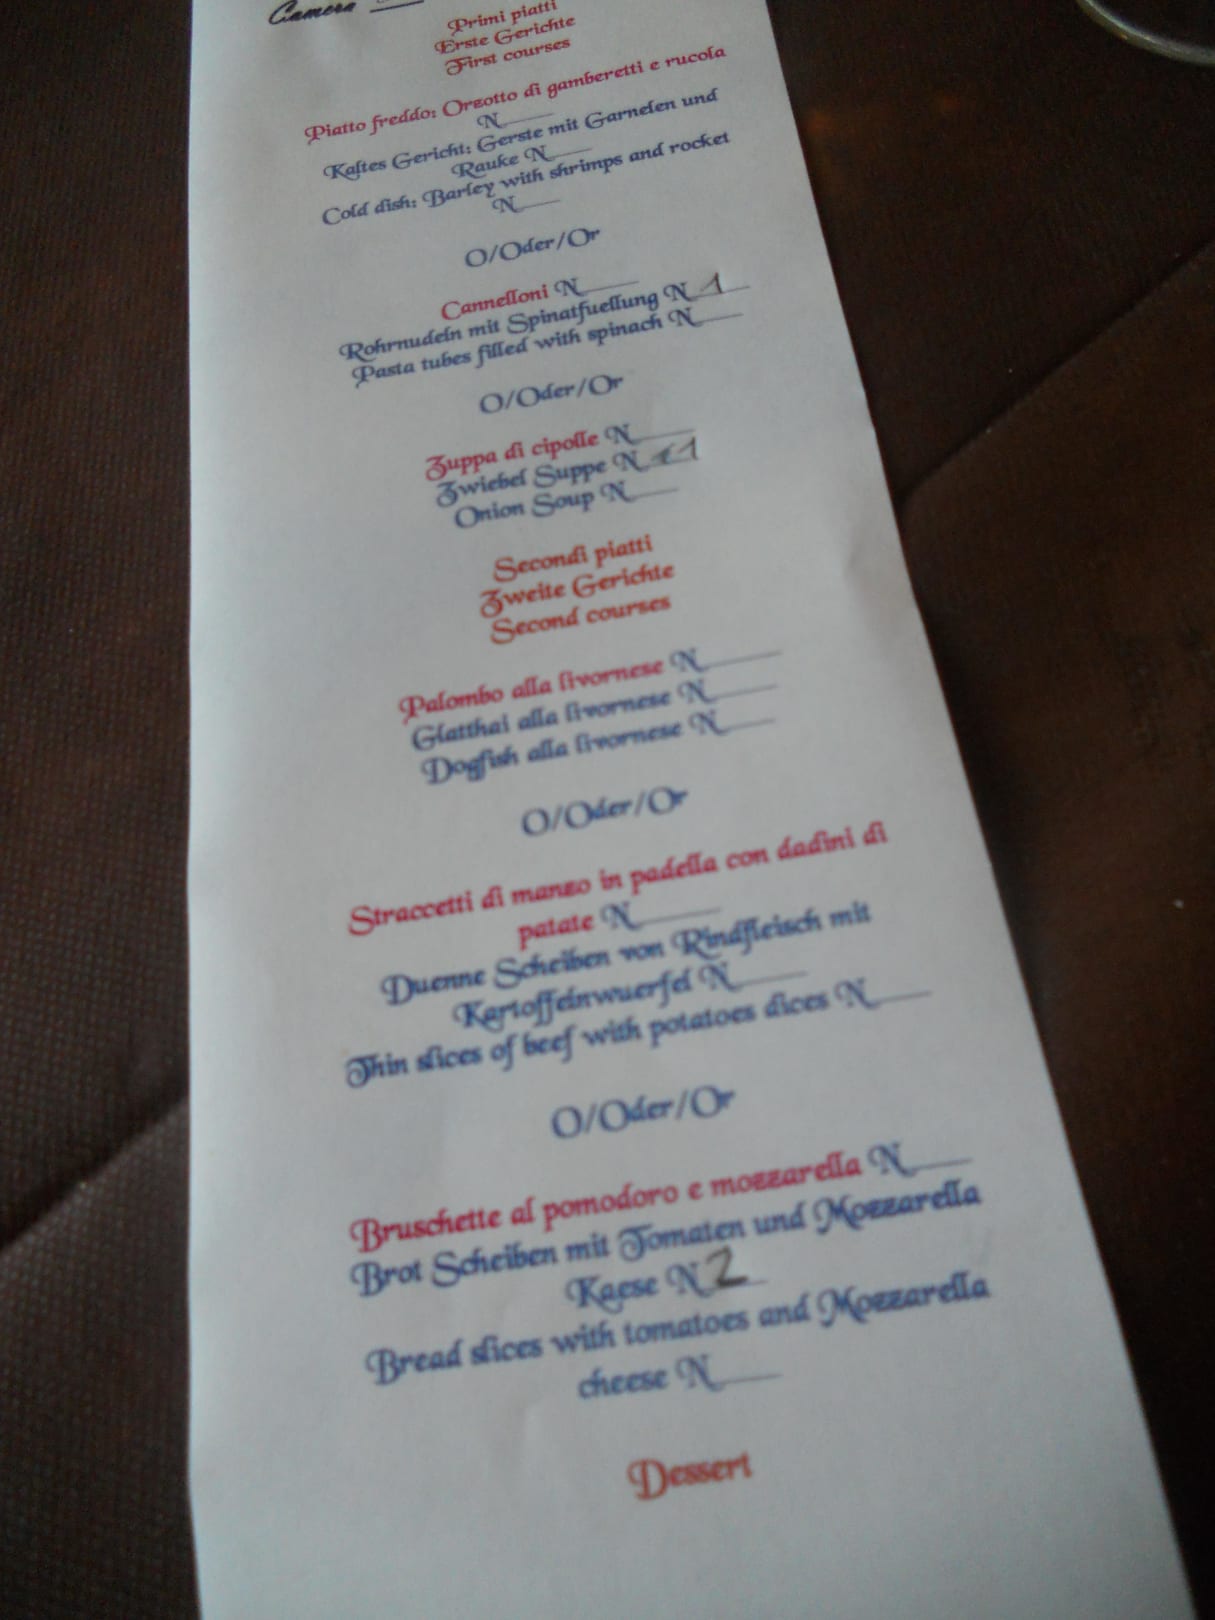 Camera
Primi piatti
Erste Gerichte
First courses
Piatto freddo: Orzotto di gamberetti e rucola
N
Kaltes Gericht: Gerste mit Garnelen und
Rauke N
Cold dish: Barley with shrimps and rocket
N
O/Oder/Or
Cannelloni N
Rohrnudeln mit Spinatfuellung N 1
Pasta tubes filled with spinach N
O/Oder/Or
Zuppa di cipolle N
Zwiebel Suppe N 11
Onion Soup N
Secondi piatti
Zweite Gerichte
Second courses
Palombo alla livornese N
Glatthai alla livornese N
Dogfish alla livornese N
O/Oder/Or
Straccetti di manzo in padella con dadini di
patate N
Duenne Scheiben von Rindfleisch mit
Kartoffelnwuerfel N
Thin slices of beef with potatoes dices N
O/Oder/Or
Bruschette al pomodoro e mozzarella N
Brot Scheiben mit Tomaten und Mozzarella
Kaese N 2
Bread slices with tomatoes and Mozzarella
cheese N
Dessert